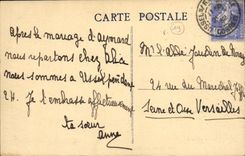 CARTE POSTALE
Après le mariage d'Aymard
nous repartons chez
nous sommes à Ussel pendant
24 h. Je t'embrasse affectueusement
ta sœur
Anne
Mr l'abbé Jourdan du
24 rue du Maréchal
Seine et Oise Versailles